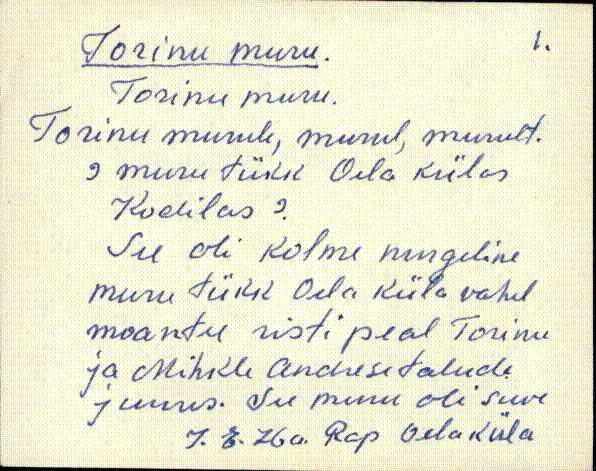 1.
Torinu muru.
Torinu muru.
Torinu murule, murul, murult.
? muru tükk Oela külas
Kodilas ?.
See oli kolme nurgeline
muru tükk Oela küla vahel
moantee risti peal Torinu
ja Mihkle Andrese talude
juures. See muru oli suve
Rap Oelaküla